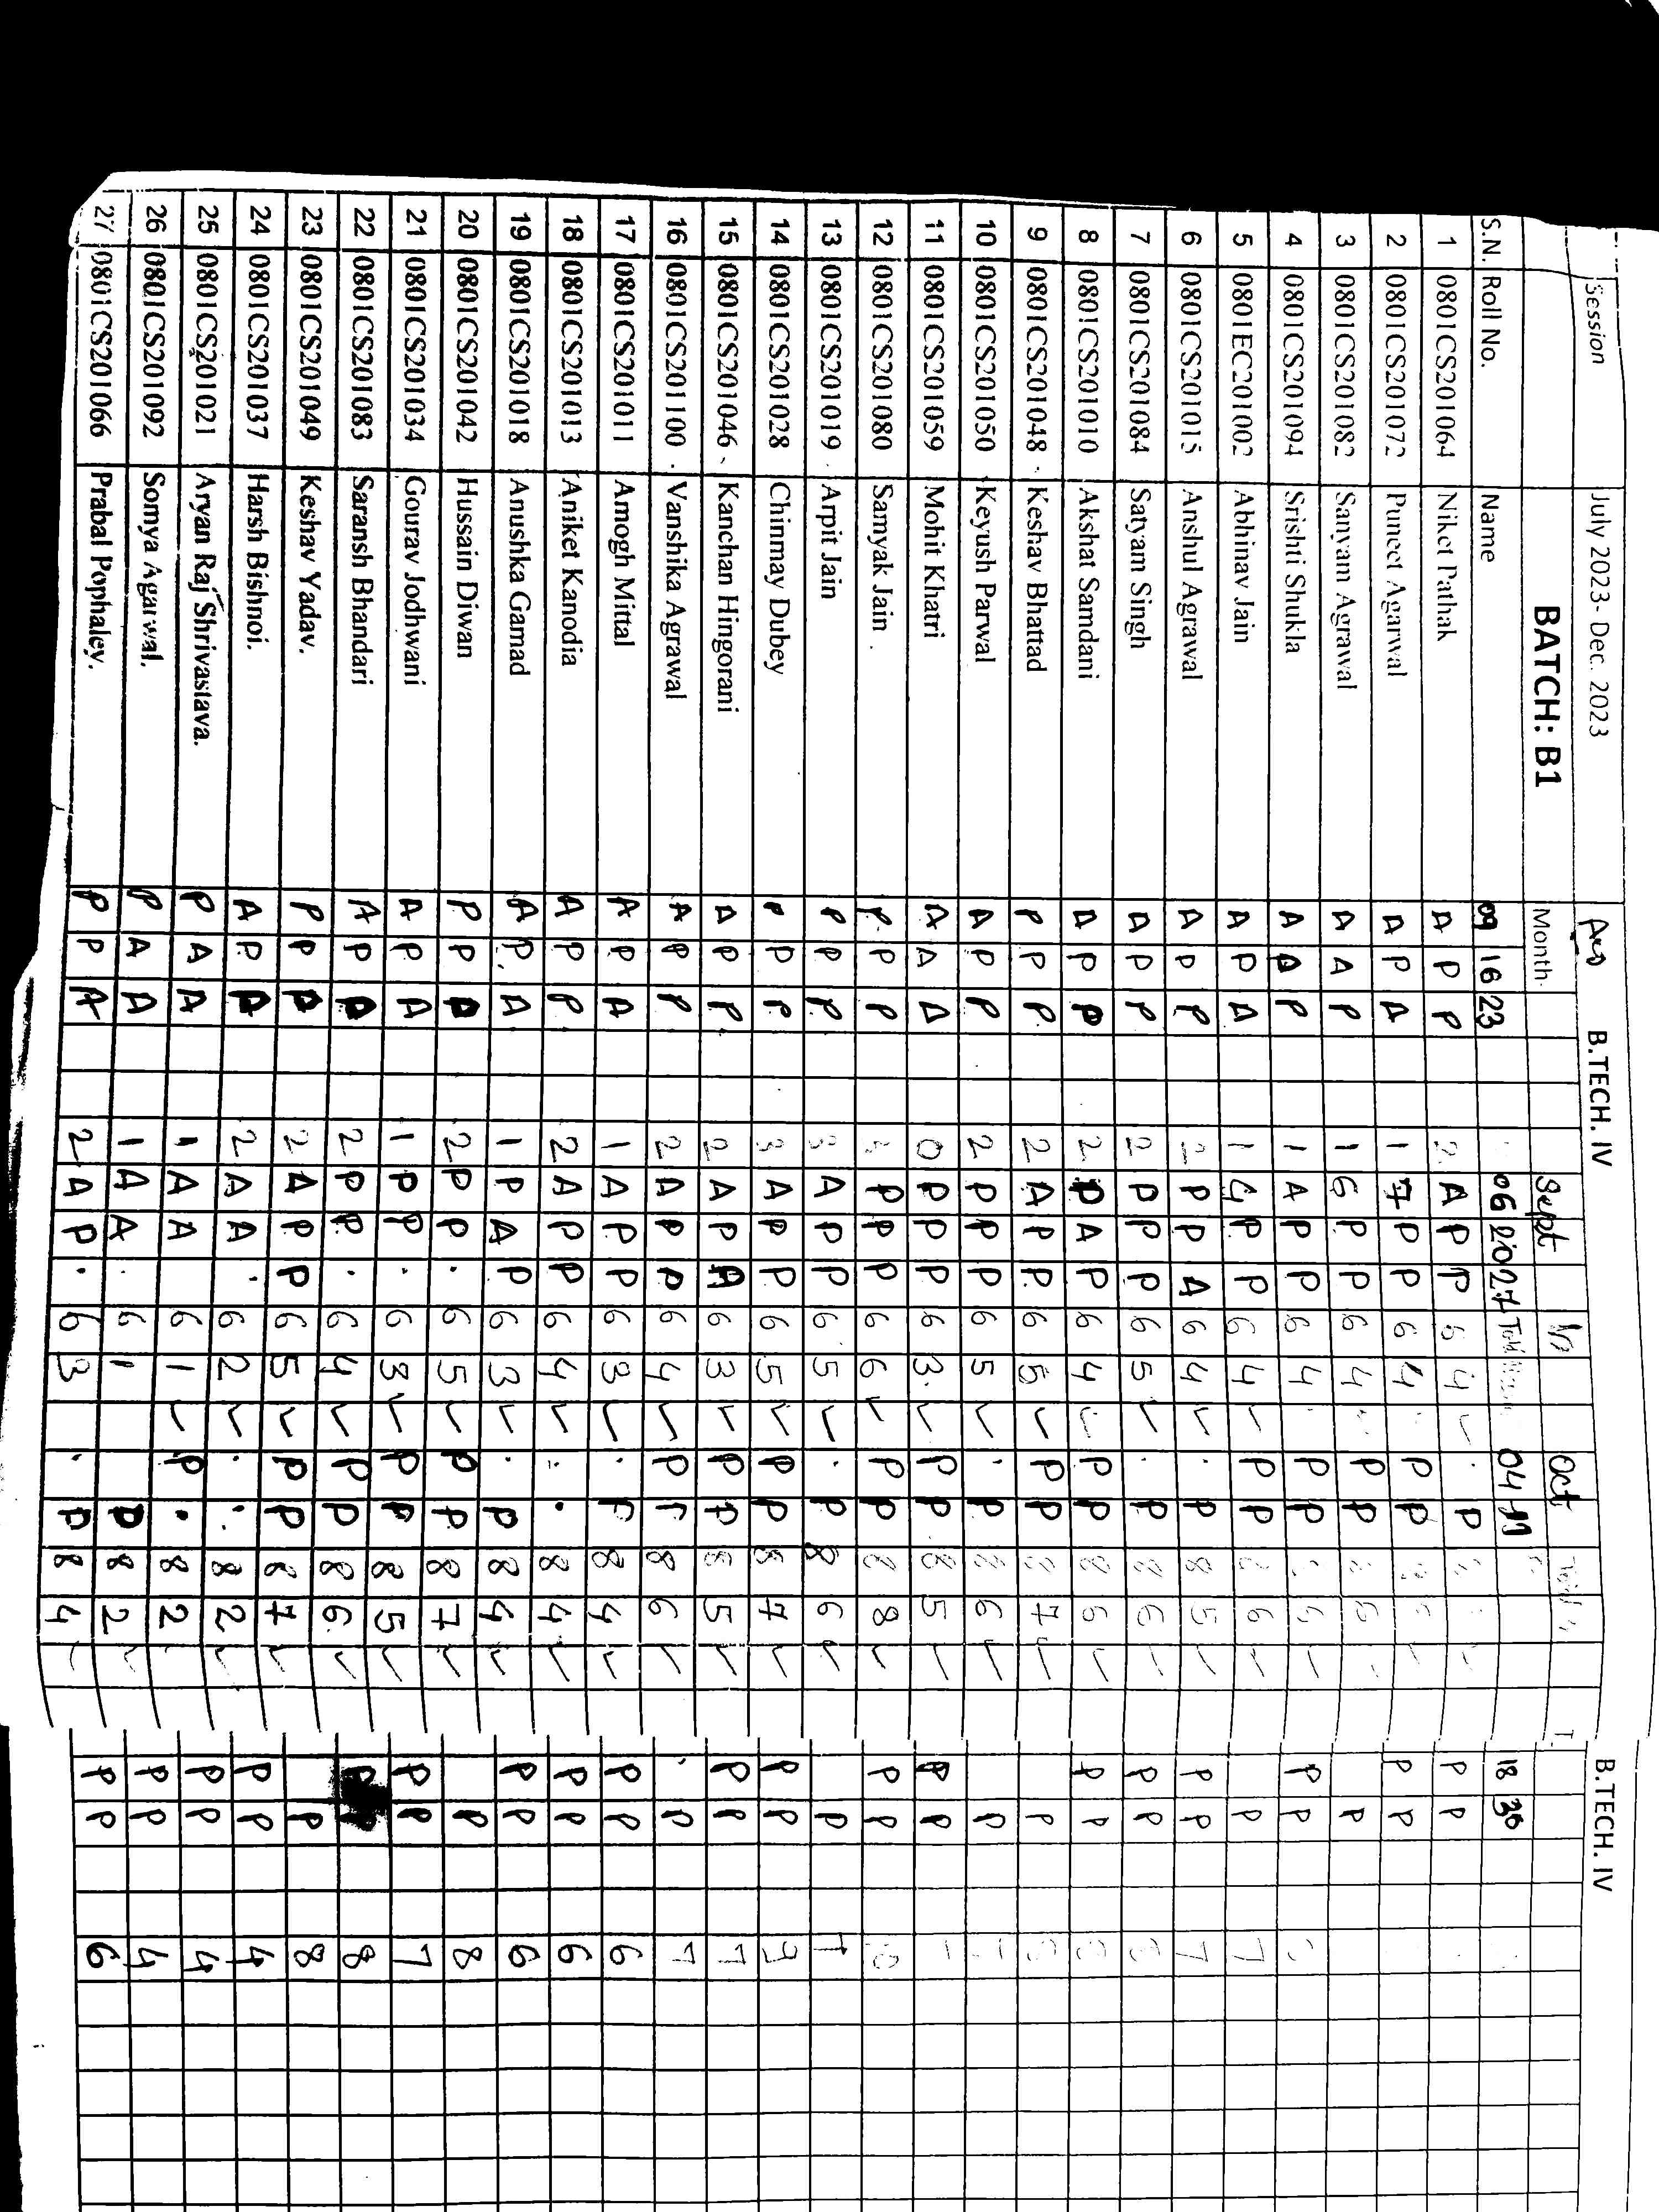 Session July 2023- Dec. 2023 Aug B.TECH. IV
BATCH: B1 Month Sept Oct
S.N. Roll No. Name 09 16 23 06 20 27 Total 04 11
1 0801CS201064 Niket Pathak A P P 2 A P P 6 4 ✓ . P
2 0801CS201072 Puneet Agarwal A P A 1 7 P P 6 4 . P P
3 0801CS201082 Sanyam Agrawal A A P 1 6 P P 6 4 P P
4 0801CS201094 Srishti Shukla A A P 1 A P P 6 4 . P P
5 0801EC201002 Abhinav Jain A P A 1 4 P P 6 4 ✓ P P 6 ✓
6 0801CS201015 Anshul Agrawal A P P 2 P P A 6 4 ✓ . P 8 5 ✓
7 0801CS201084 Satyam Singh A P P 2 P P P 6 5 ✓ . P 8 6
8 0801CS201010 Akshat Samdani A P P 2 P A P 6 4 ✓ P P 8 6 ✓
9 0801CS201048 Keshav Bhattad P P P 2 A P P 6 5 ✓ P P 8 7 ✓
10 0801CS201050 Keyush Parwal A P P 2 P P P 6 5 ✓ . P 8 6 ✓
11 0801CS201059 Mohit Khatri A A A 0 P P P 6 3 ✓ P P 8 5 ✓
12 0801CS201080 Samyak Jain P P P 3 P P P 6 6 ✓ P P 8 8 ✓
13 0801CS201019 Arpit Jain P P P 3 A P P 6 5 ✓ . P 8 6 ✓
14 0801CS201028 Chinmay Dubey P P P 3 A P P 6 5 ✓ P P 8 7 ✓
15 0801CS201046 Kanchan Hingorani A P P 2 A P A 6 3 ✓ P P 8 5 ✓
16 0801CS201100 Vanshika Agrawal A P P 2 A P P 6 4 ✓ P P 8 6 ✓
17 0801CS201011 Amogh Mittal A P A 1 A P P 6 3 ✓ . P 8 4 ✓
18 0801CS201013 Aniket Kanodia A P P 2 A P P 6 4 ✓ . . 8 4 ✓
19 0801CS201018 Anushka Gamad A P A 1 P A P 6 3 ✓ . P 8 4 ✓
20 0801CS201042 Hussain Diwan P P 2 P P . 6 5 ✓ P P 8 7 ✓
21 0801CS201034 Gourav Jodhwani A P A 1 P P . 6 3 ✓ P P 8 5 ✓
22 0801CS201083 Saransh Bhandari A P 2 P P . 6 4 ✓ P P 8 6 ✓
23 0801CS201049 Keshav Yadav. P P 2 A P P 6 5 ✓ P P 8 7 ✓
24 0801CS201037 Harsh Bishnoi. A P A 2 A A . 6 2 ✓ . . 8 2 ✓
25 0801CS201021 Aryan Raj Shrivastava. P A A 1 A A 6 1 ✓ P . 8 2 ✓
26 0801CS201092 Somya Agarwal. P A A 1 A A . 6 1 P 8 2 ✓
27 0801CS201066 Prabal Pophaley. P P A 2 A P . 6 3 . P 8 4 ✓
B.TECH. IV
18 30
P P
P P
P
P P
P 7
P P 7
P P
P P
P
P
P P
P P 8
P 7
P P 7
P P 7
. P 7
P P 6
P P 6
P P 6
P 8
P P 7
P P 8
P 8
P P 4
P P 4
P P 4
P P 6